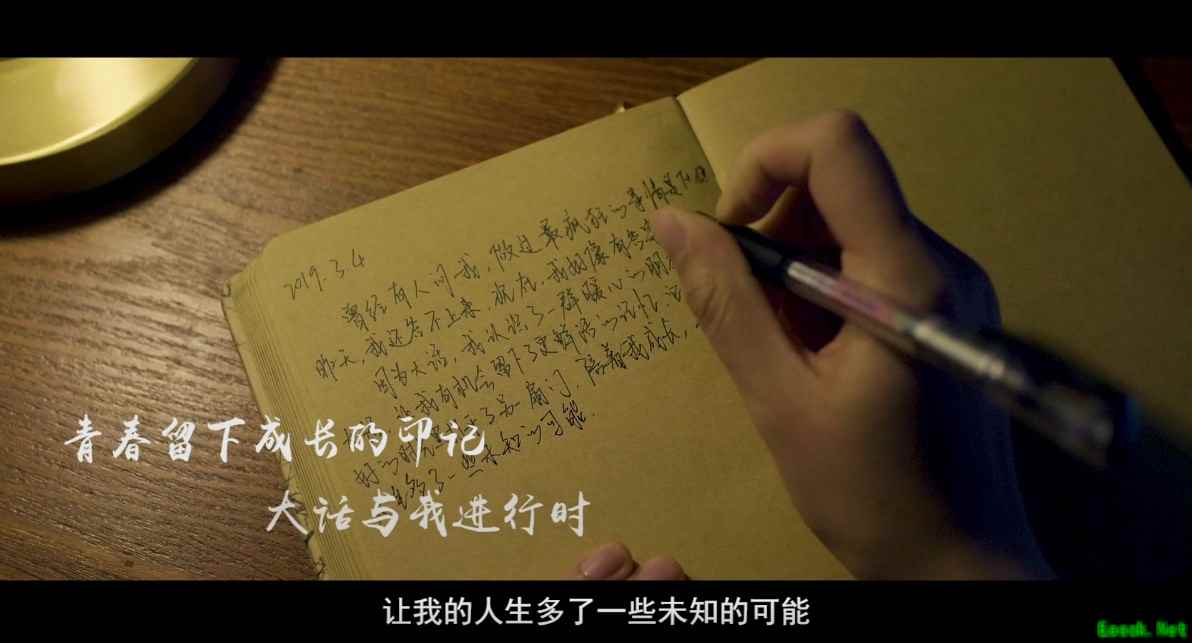 2019.3.4
曾经有人问我，做过最疯狂的事情是
昨天，我还答不上来，现在，我想像有答
因为大话，我认识了一群暖心的朋
让我有机会留下了更鲜活的记忆，记
了另一扇门，陪着我成长，
多了一些未知的可能.
青春留下成长的印记
大话与我进行时
让我的人生多了一些未知的可能